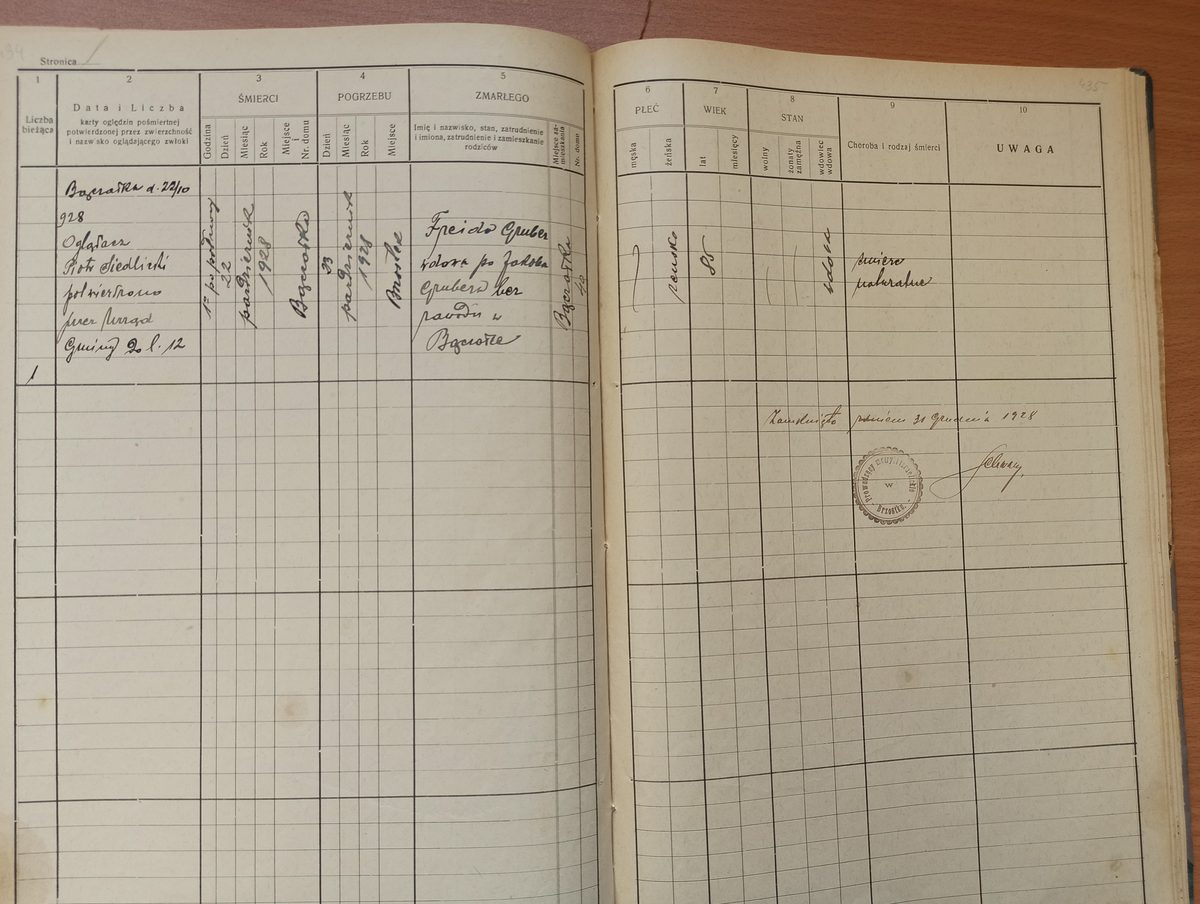 434
Stronica 1
1
2
3
4
5
Liczba
bieżąca
Data i Liczba
karty oględzin pośmiertnej
potwierdzonej przez zwierzchność
i nazwisko oglądającego zwłoki
ŚMIERCI
Godzina
Dzień
Miesiąc
Rok
Miejsce
Nr. domu
POGRZEBU
Dzień
Miesiąc
Rok
Miejsce
ZMARŁEGO
Imię i nazwisko, stan, zatrudnienie
i imiona, zatrudnienie i zamieszkanie
rodziców
Miejsce za-
mieszkania
Nr. domu
1
Bączałka d. 22/10
928
Oglądacz
Piotr Siedlecki
potwierdzono
przez Urząd
Gminy do l. 12
1 po południu
22
październik
1928
Bączałka
23
październik
1928
Brostek
Freida Gruber
wdowa po Jakobie
Grubera bez
zawodu w
Bączałce
Bączałka
435
6
7
8
9
10
PŁEĆ
męska
żeńska
WIEK
lat
miesięcy
STAN
wolny
żonaty
zamężna
wdowiec
wdowa
Choroba i rodzaj śmierci
UWAGA
żeńska
85
wdowa
śmierć
naturalna
Zamknięto 31 Grudnia 1928
Prowadzący
w
Brzostku.